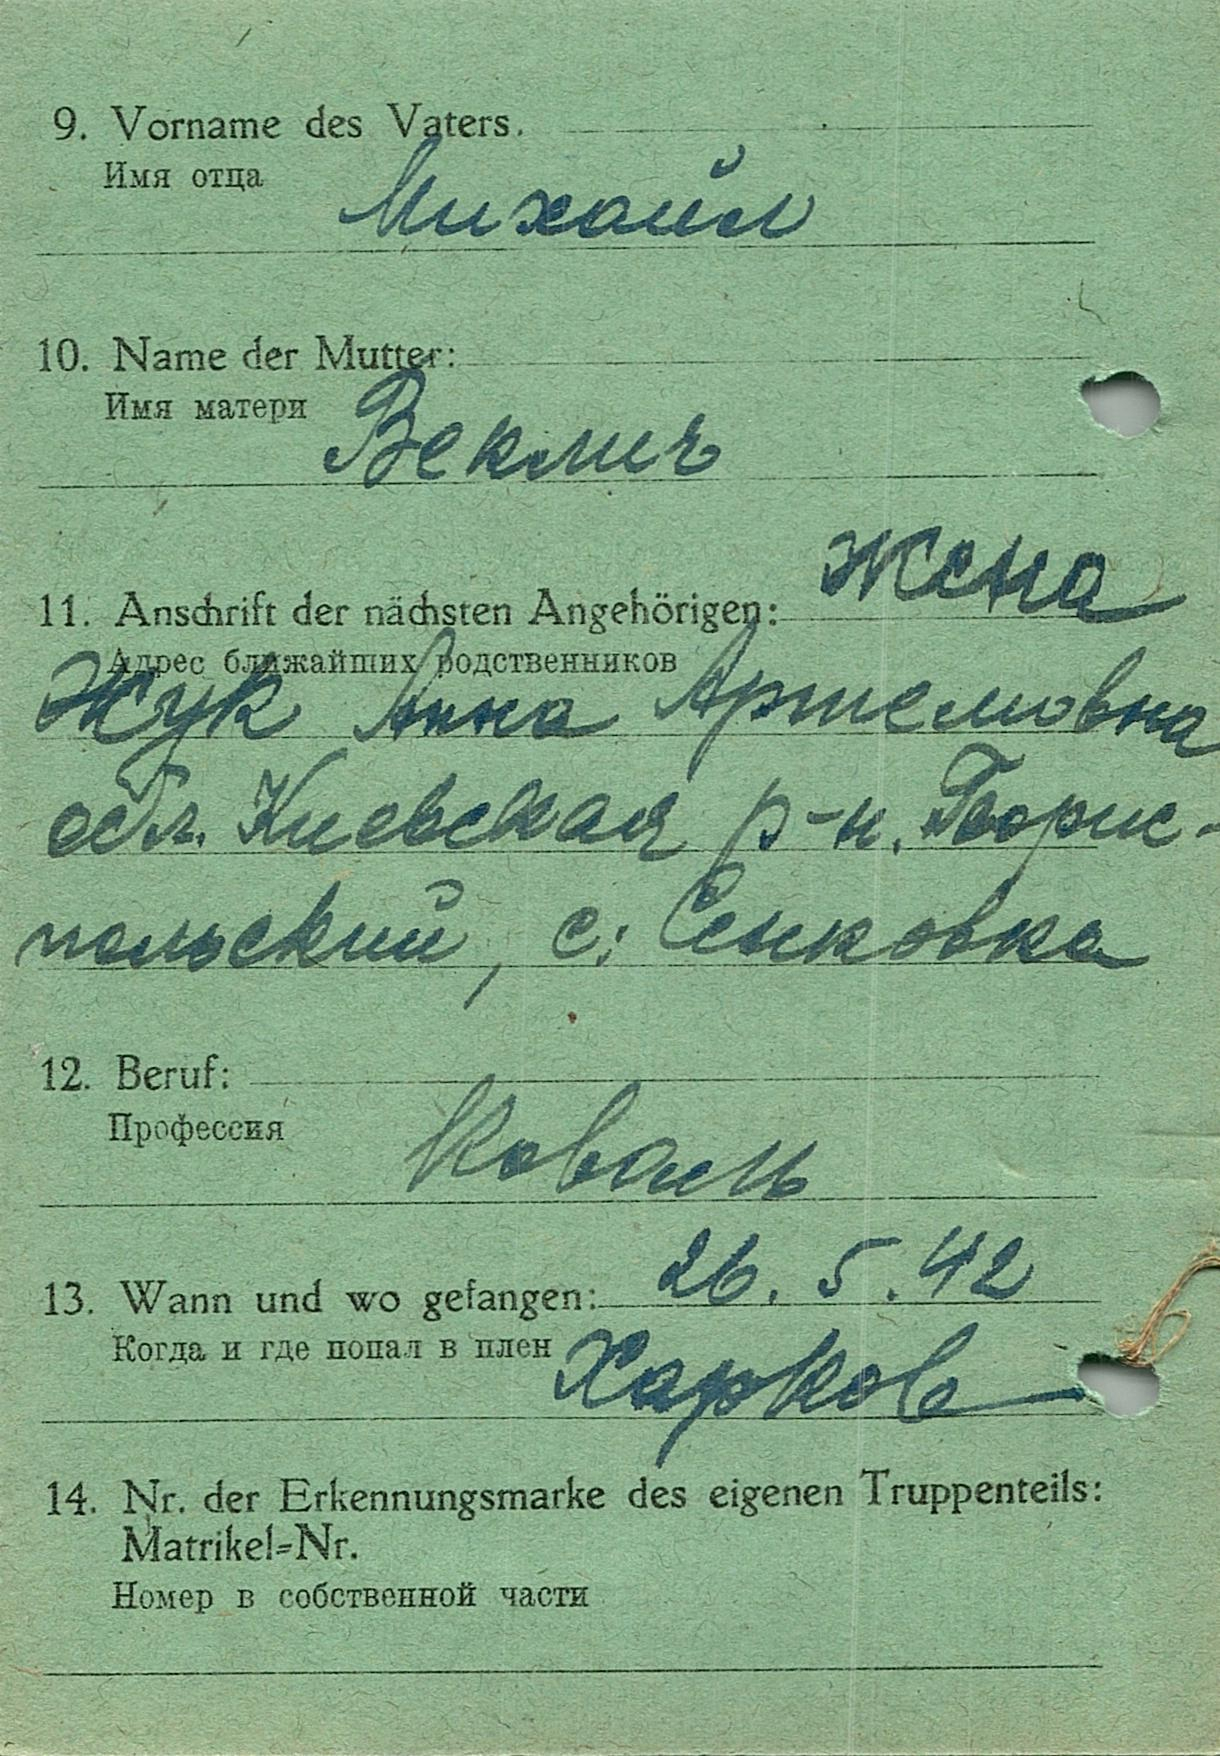 9. Vorname des Vaters.
Имя отца
Михайл
10. Name der Mutter:
Имя матери
Веклич
Жена
11. Anschrift der nächsten Angehörigen:
Адрес ближайших родственников
Жук Анна Артемовна
обл. Киевская р-н. Борис-
польский, с: Сеньковка
12. Beruf:
Профессия
Коваль
26. 5. 42
13. Wann und wo gefangen:
Когда и где попал в плен
Харков
14. Nr. der Erkennungsmarke des eigenen Truppenteils:
Matrikel=Nr.
Номер в собственной части